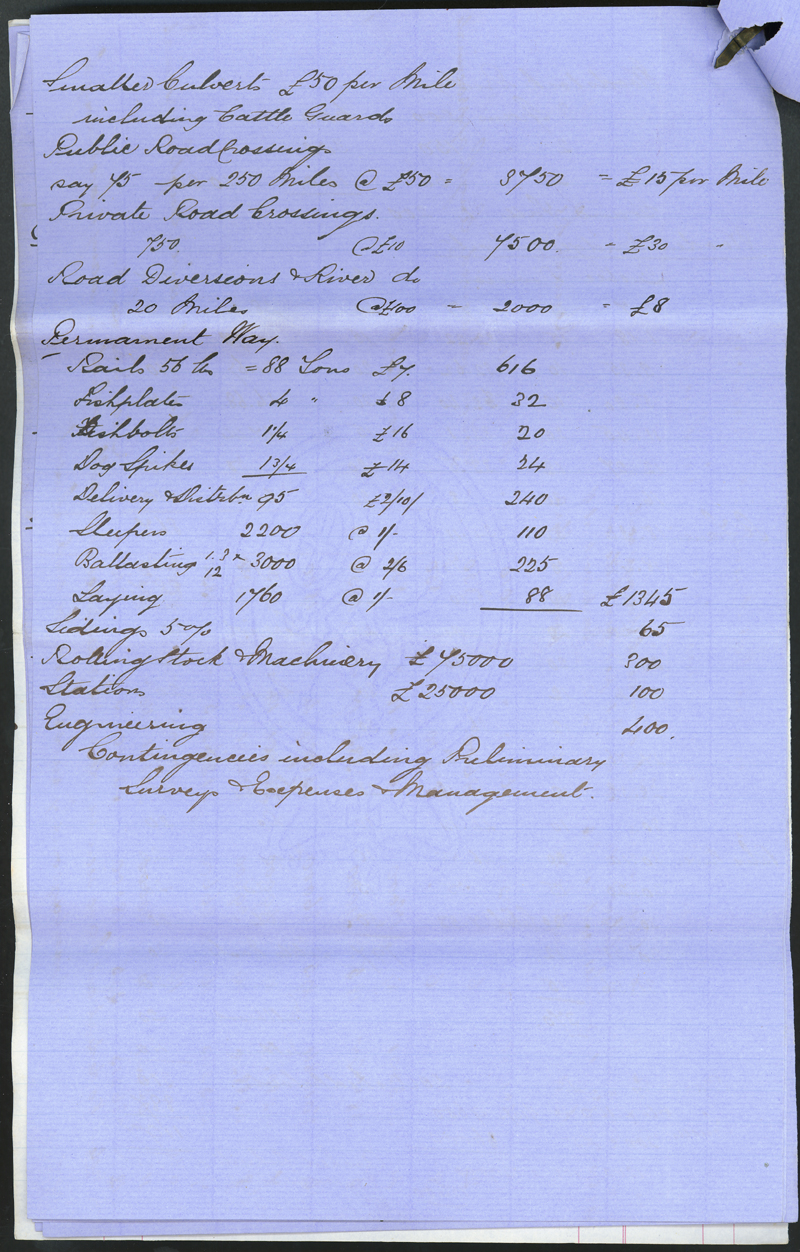 Smaller Culverts £50 per Mile
including Cattle Guards
Public Road Crossings
say 75 per 250 Miles @ £50 = 3750 = £15 per Mile
Private Road Crossings.
750. @£10 7500. = £30 "
Road Diversions & River do
20 Miles @£100 = 2000 = £8
Permament Way.
Rails 56 lbs = 88 Tons £7. 616
Fishplates 4 " £8 32
Fishbolts 1 1/4 £16 20
Dog Spikes 1 3/4 £14 24
Delivery & Distrbn 95 £2/10/ 240
Sleepers 2200 @ 1/- 110
Ballasting 3000 @ 2/6 225
Laying 1760 @ 1/- 88 £1345
Sidings 5% 65
Rolling Stock & Machinery £75000 300
Stations £25000 100
Engineering 400.
Contingencies including Preliminary
Surveys & Expenses & Management.